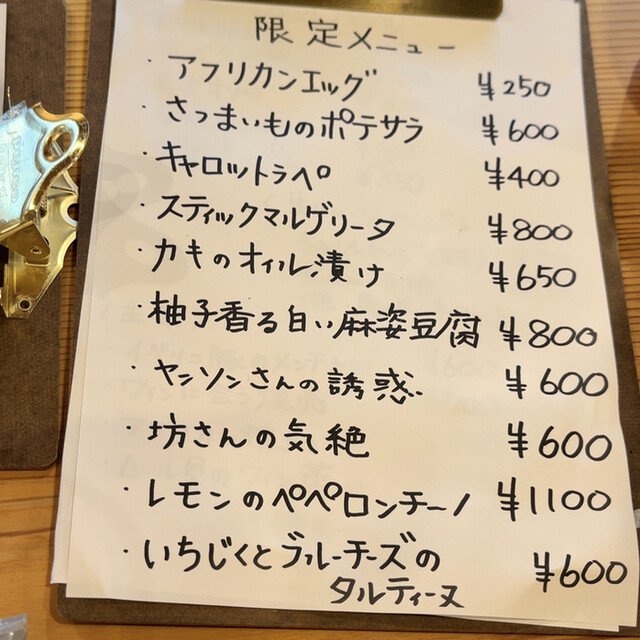 限定メニュー
・アフリカンエッグ ¥250
・さつまいものポテサラ ¥600
・キャロットラペ ¥400
・スティックマルゲリータ ¥800
・カキのオイル漬け ¥650
・柚子香る白い麻婆豆腐 ¥800
・ヤンソンさんの誘惑 ¥600
・坊さんの気絶 ¥600
・レモンのペペロンチーノ ¥1100
・いちじくとブルーチーズの
タルティーヌ ¥600